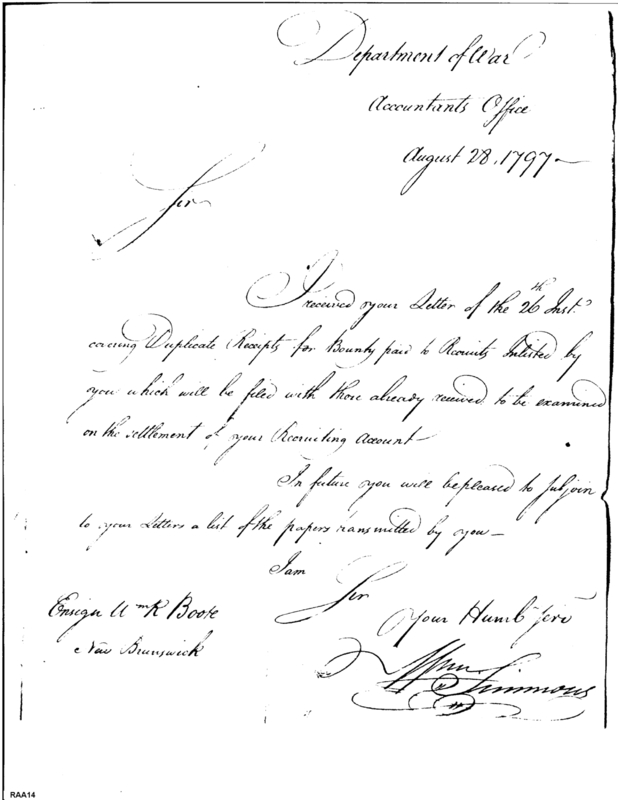 Department of War
Accountants Office
August 28, 1797—
Sir
I received your Letter of the 26th Inst.
covering Duplicate Receipts for Bounty paid to Recruits Inlisted by
you which will be filed with those already received to be examined
on the settlement of your Recruiting Account—
In future you will be pleased to subjoin
to your Letters a list of the papers transmitted by you—
I am
Sir
Your Humb Serv
Ensign Wm R Boote
New Brunswick
Wm Simmons
RAA14